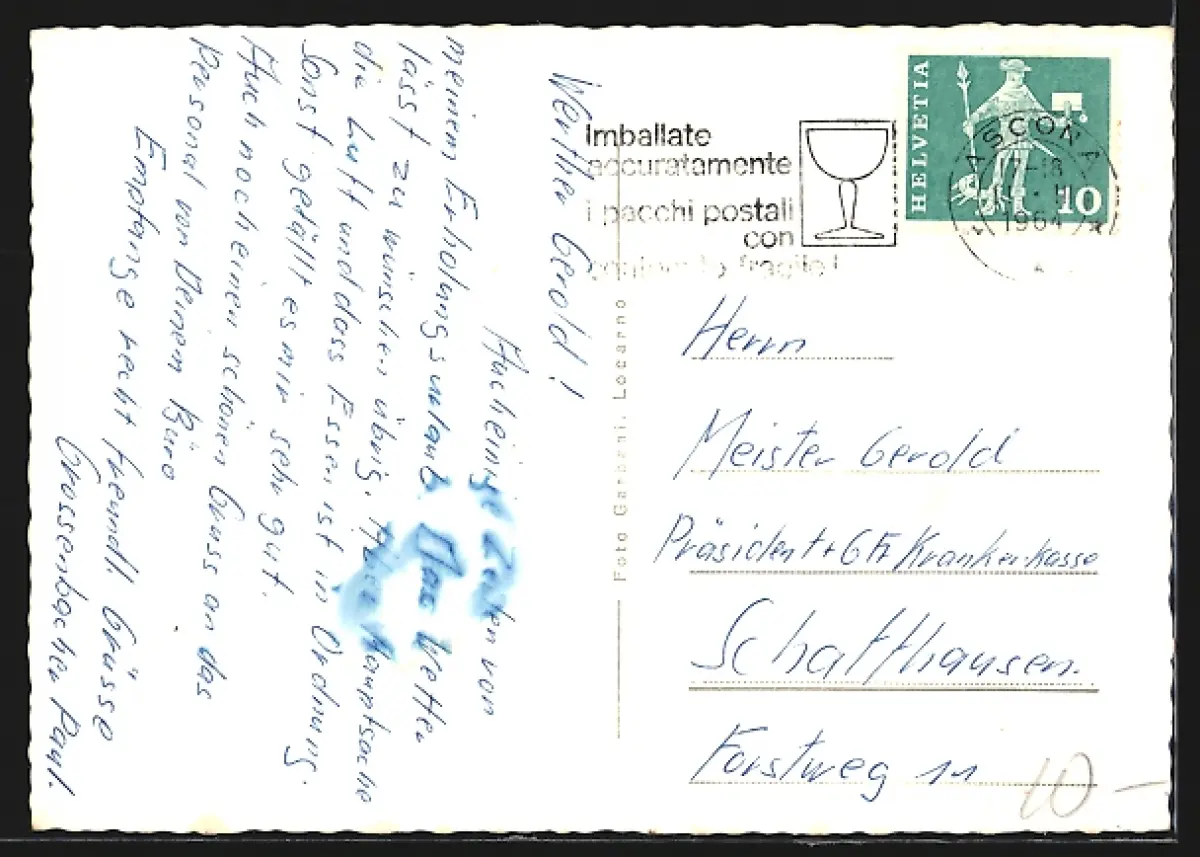 Werther Gerold!
Auch einige Zeilen von
meinem Erholungsurlaub. Das Wetter
lässt zu wünschen übrig. Aber Hauptsache
die Luft und dass Essen ist in Ordnung.
Sonst gefällt es mir sehr gut.
Auch noch einen schönen Gruss an das
Personal von Deinem Büro
Empfange recht freundl. Grüsse
Grossenbacher Paul.
Foto Garbani, Locarno
Imballate
accuratamente
i pacchi postali
con
contenuto fragile!
HELVETIA
10
ASCONA
-18
1964
Herrn
Meister Gerold
Präsident + Krankenkasse
Schaffhausen.
Forstweg 11
10 -